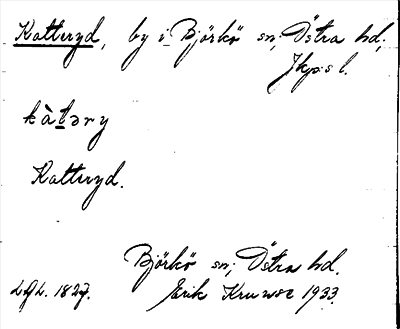 Katteryd, by i Björkö sn; Östra hd,
Jkp:s l.
kàtəry
Katteryd.
Björkö sn; Östra hd.
LGL. 1827. Erik Kruuse 1933